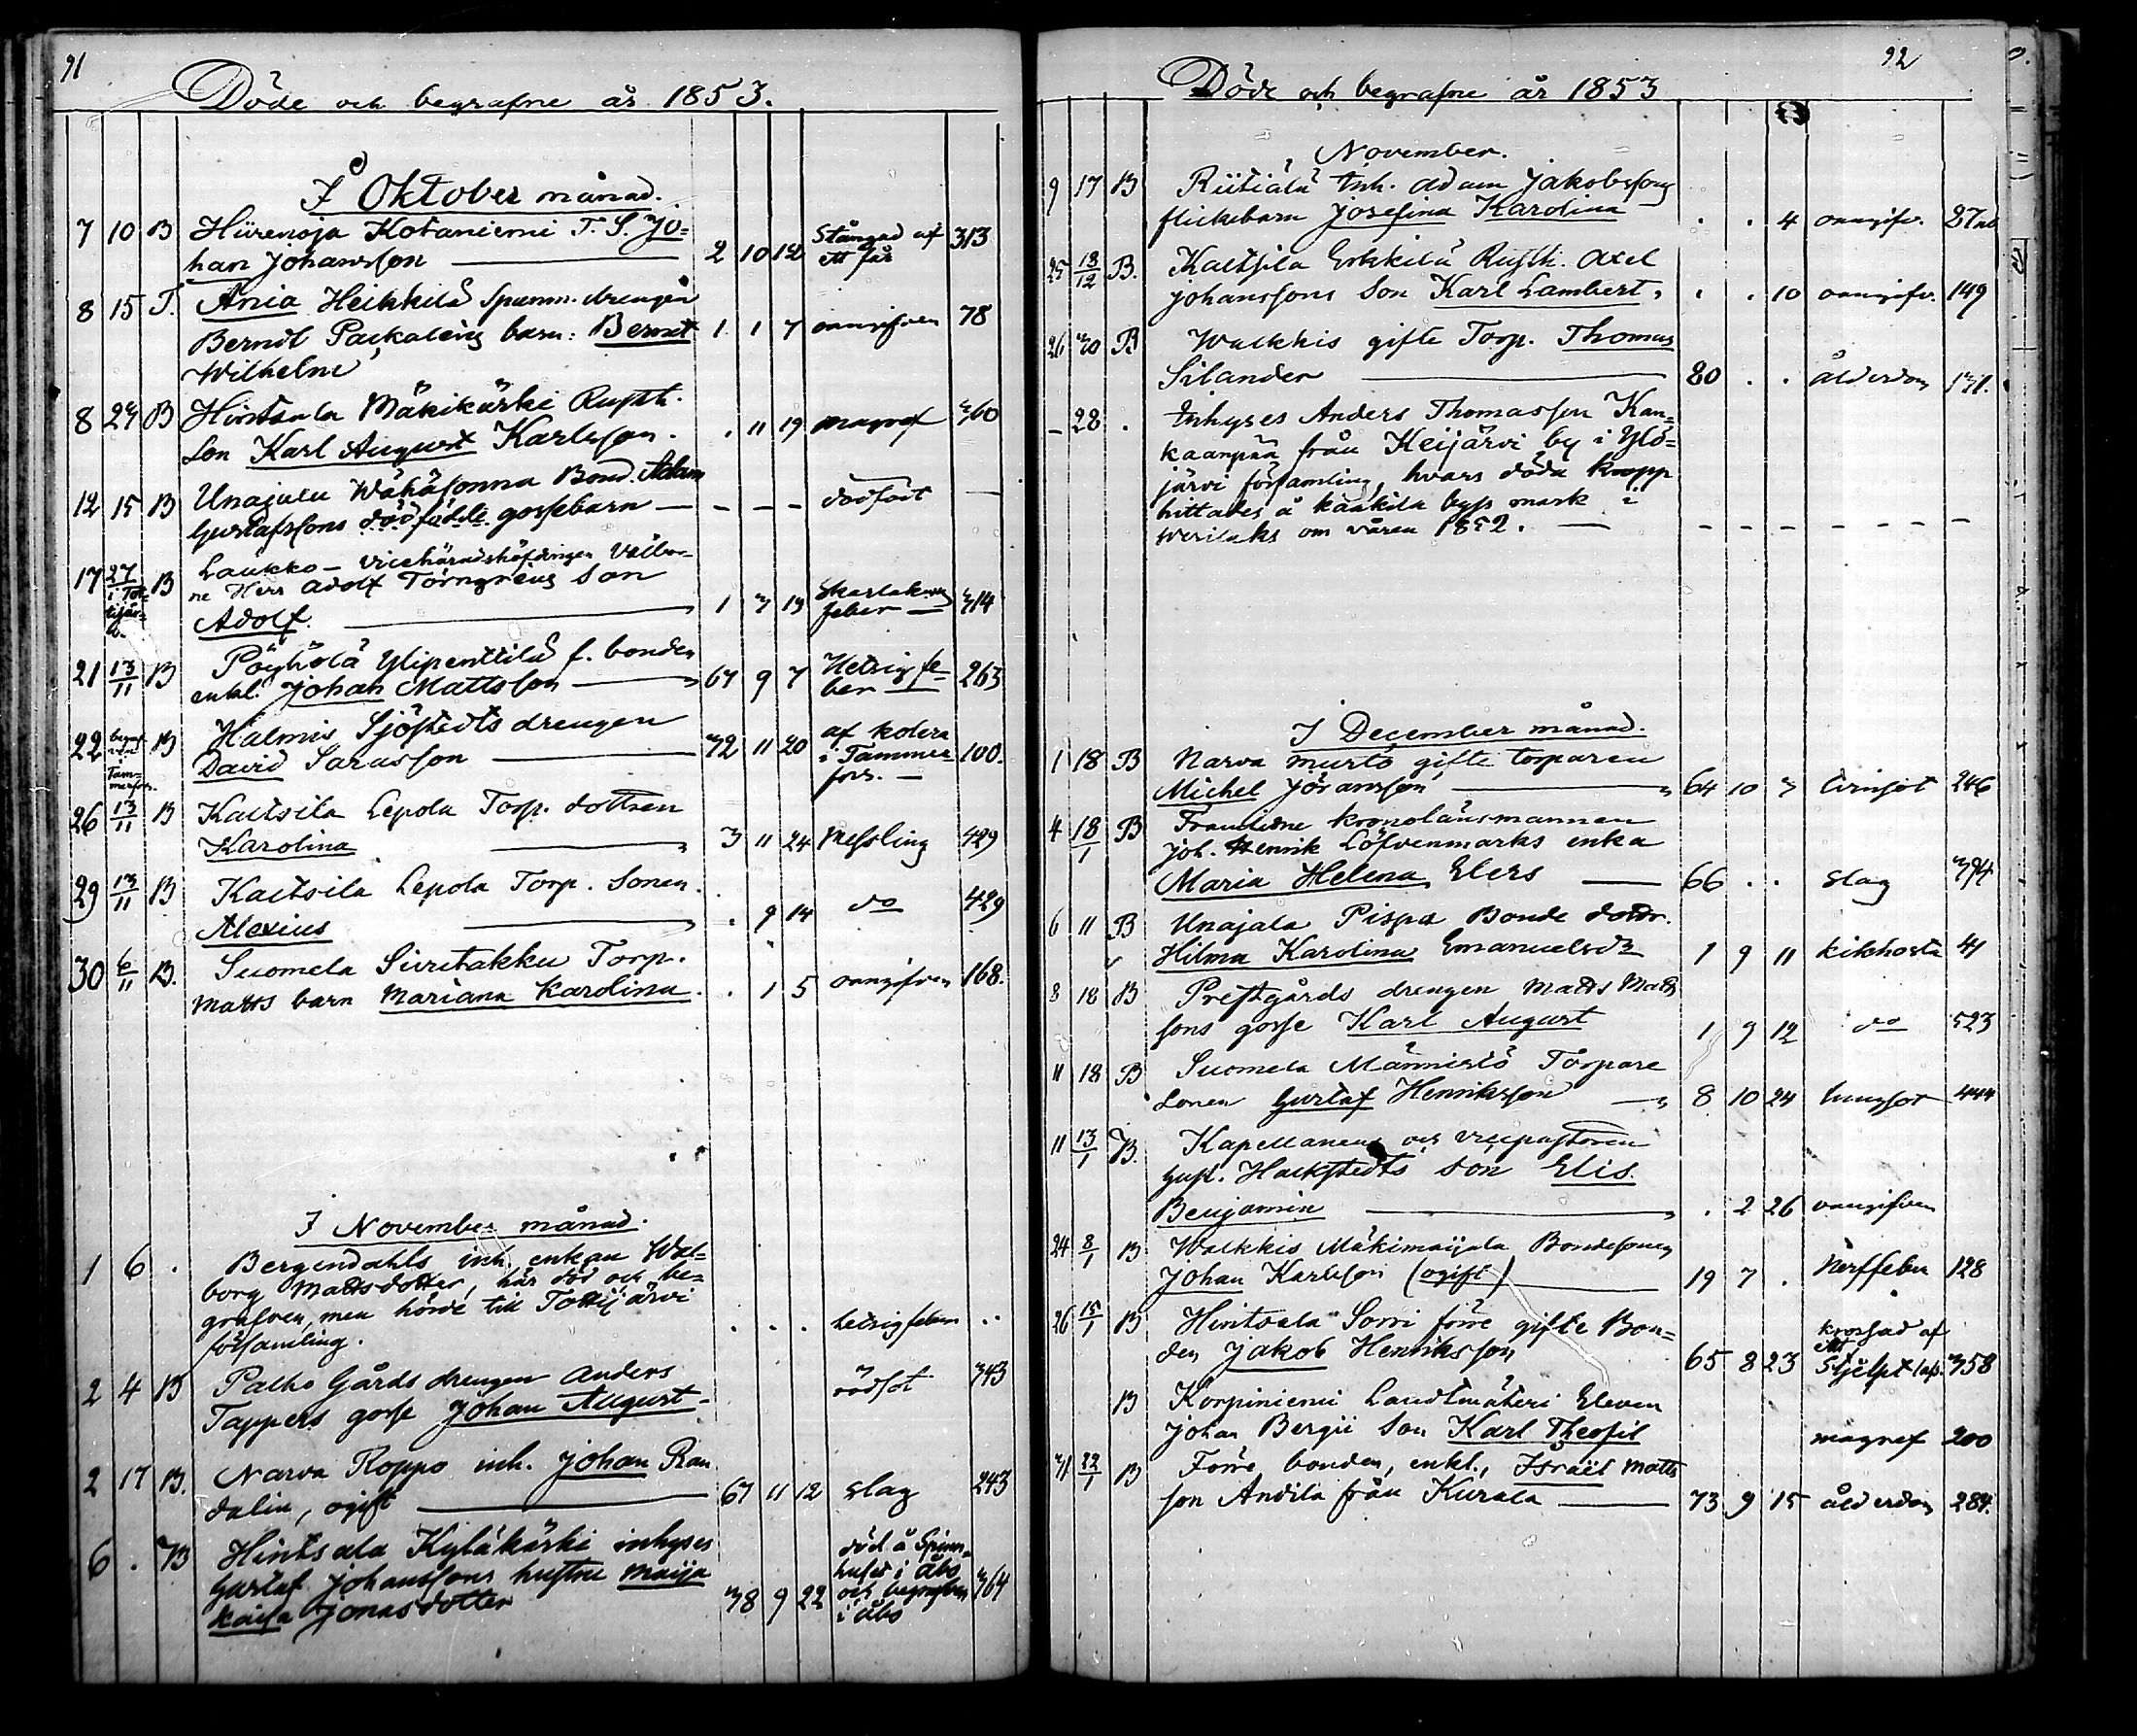 91
Döde och begrafne år 1853.
I Oktober månad.
7 10 B Hiirenoja Kotaniemi T. S. Jo=
han Johansson 2 10 12 Stångad af ett får 313
8 15 T. Ania Heikkilä Spanm. drengen
Berndt Packalens barn: Bernt 1 1 7 oangifven 78
Wilhelm
8 23 B Hintsala Mäkikärki Rusth.
Son Karl August Karlsson . 11 19 magref 360
12 15 B Unajala Wähäsonna Bond. Adam
Gustafssons dödfödde gossebarn — - - - dödfödt —
17 27 i Tot= tijär= vi B Laukko – vicehäradshöfdingen Välbor=
ne Herr Adolf Törngrens Son
Adolf 1 3 13 Skarlakans feber 314
21 13/11 B Pöyhölä Ylipenttilä f. bonden
enkl. Johan Mattsson 67 9 7 Hetsig fe= ber 263
22 begrafven i Tam= merfors. B Halmis Sjöstedts drengen
David Sarasson 32 11 20 af kolera i Tammer fors. 100.
26 13/11 B Kaitsila Lepola Torp. dottren
Karolina 3 11 24 Messling 429
29 13/11 B Kaitsila Lepola Torp. Sonen
Alexius . 9 14 do 429
30 6/11 B. Suomela Siiritakku Torp.
Matts barn Mariana Karolina . 1 5 oangifven 168.
I November månad.
1 6 . Bergendahls inh. enkan Wal=
borg Mattsdotter, här död och be=
grafven, men hörde till Tottijärvi
församling. . . . hetsig feber ..
2 4 B Palho Gårds drengen Anders
Tappers gosse Johan August rödsot 343
2 17 B. Narva Roppo inh. Johan Ran
dalin, ogift 67 11 12 slag 243
6 . B Hintsala Kyläkärki inhyses
Gustaf Johanssons hustru Maija
Kaisa Jonasdotter 38 9 22 död å Spinn= huset i Åbo och begrafven i Åbo 364
92
Döde och begrafne år 1853
November.
9 17 B Riitiälä Inh. Adam Jakobssons
flickebarn Josefina Karolina . . 4 oangifv.
25 18/12 B. Kaitsila Erkkilä Rusth. Axel
Johanssons Son Karl Lambert . . 10 oangifv. 149
26 30 B Walkkis gifte Torp. Thomas
Silander 80 . . ålderdom 131.
– 28 . Inhyses Anders Thomasson Kan=
kaanpää från Keijärvi by i Ylö=
järvi församling, hvars döda kropp
hittades å Kaakila bys mark i
Wesilaks om våren 1852. — - - - - - -
I December månad.
1 18 B Narva murto gifte torparen
Michel Jöransson 64 10 3 lungsot 246
4 18/1 B Framlidne kronolänsmannen
Joh. Henrik Löfvenmarks enka
Maria Helena Elers 66 . . slag 374
6 11 B Unajala Pispa Bonde dottr.
Hilma Karolina Emanuelsdr 1 9 11 kikhosta 41
8 18 B Prestgårds drengen Matts Matts
sons gosse Karl August 1 9 12 do 523
11 18 B Suomela Männistö Torpare
Sonen Gustaf Henriksson 8 10 24 lungsot 444
11 13/1 B. Kapellanens och vicepastoren
Gust. Hackstedts son Elis
Benjamin . 2 26 oangifven
24 8/1 B Walkkis Mäkimaijala Bondesonen
Johan Karlsson (ogift) 19 7 . Nerffeber 128
26 15/1 B Hintsala Sorri förre gifte Bon=
den Jakob Henriksson 65 8 23 krossad af ett stjelpt lass. 358
B Korpiniemi Landtmäteri Eleven
Johan Bergii Son Karl Theofil magref 200
31 22/1 B Förre bonden, enkl., Israel Matts
son Andila från Kurala 73 9 15 ålderdom 284.